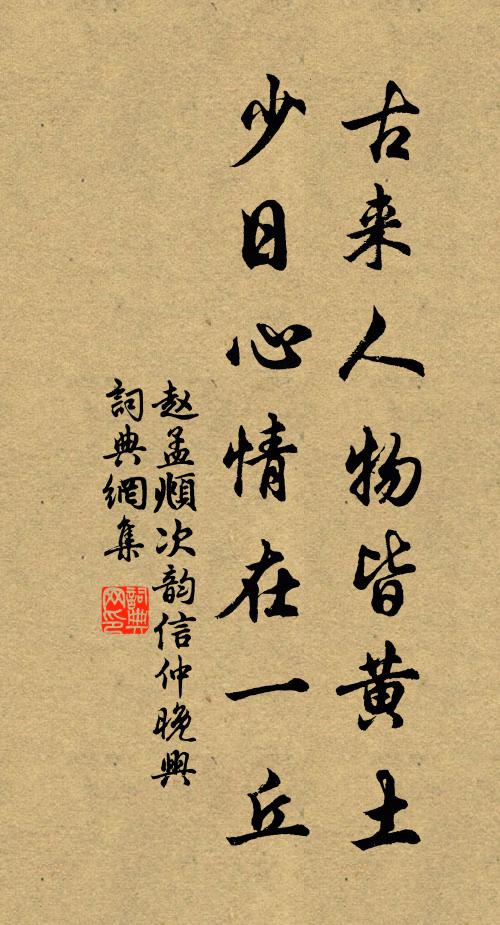 古来人物皆黄土
少日心情在一丘
赵孟頫次韵信仲晚興
詞典網集
詞典网印